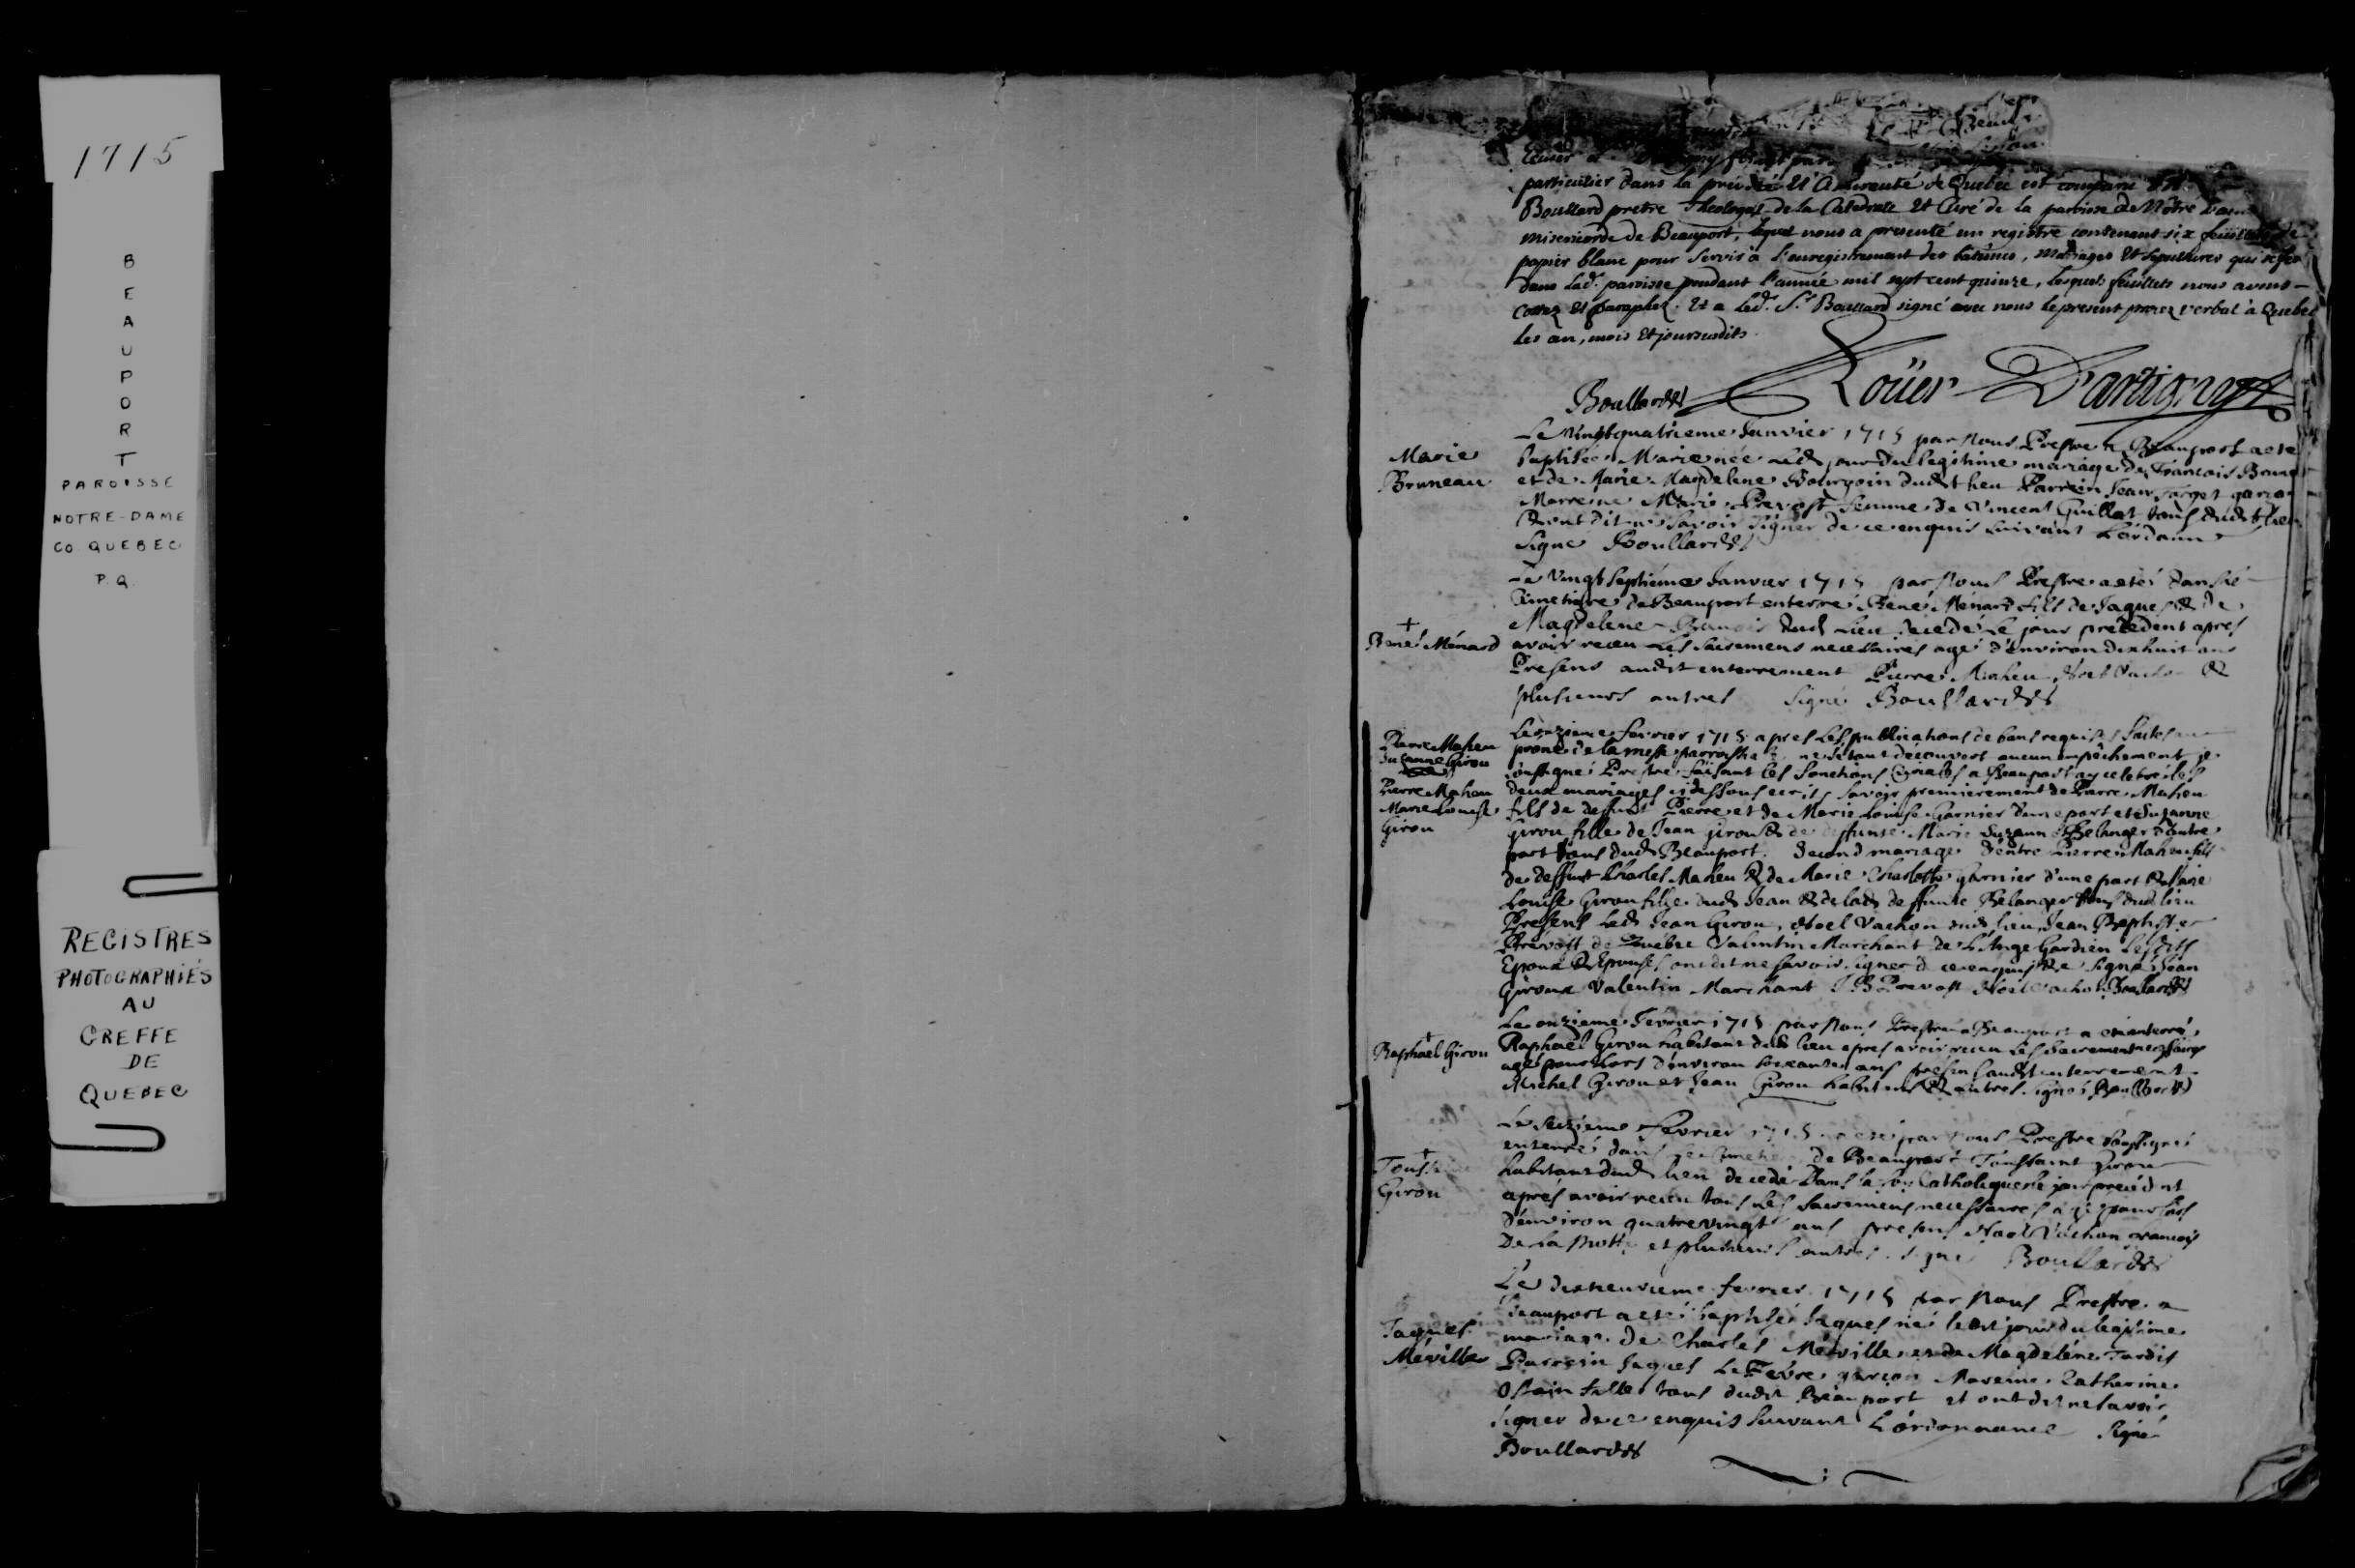 1715
B
E
A
U
P
O
R
T
PAROISSE
NOTRE-DAME
CO QUEBEC
P.Q.
REGISTRES
PHOTOGRAPHIÉS
AU
GREFFE
DE
QUEBEC
particulier dans la prévôté Et Amirauté de Quebec est comparu
Boullard pretre Theologal de la Catedrale Et Curé de la paroisse de Nôtre Dame
misericorde de Beauport, lequel nous a presenté un registre contenant six feuillets de
papier blanc pour servir à l'enregistrement des batêmes, mariages Et sepultures qui se
dans lad. paroisse pendant l'année mil sept cent quinze, lesquels feuillets nous avons
cottez Et paraphez. Et a led. Sr. Boullard signé avec nous le present procez verbal à Quebec
les an, mois Et jour susdits.
Boullard Roüer D'artigny
Marie
Bruneau
Le vingtquatrieme Janvier 1715 par Nous Prestre a Beauport a eté
baptisée Marie née led. jour du legitime mariage de François Brune
et de Marie Magdelene Bourgoin dudit lieu Parrein Jean garçon
Marreine Marie Prevost femme de Vincent Guillot tous dudit lieu
ont dit ne savoir signer de ce enquis suivant L'ordonn
signé Boullard
+
René Ménard
Le vingt septiéme Janvier 1715 par Nous Prestre a eté dans le
Cimetiére de Beauport enterré René Ménard fils de Jaques & de
Magdelene dud. Lieu decedé Le jour précedent apres
avoir receu Les sacremens necessaires agé d'environ dixhuit ans
Presens audit enterrement Pierre Maheu Noel &
plusieurs autres signé Boullard
Pierre Maheu
Suzanne Girou
Pierre Maheu
Marie Louise
Girou
Le onzieme fevrier 1715 apres Les publications de bans requises faites au
prone de la messe parroissiale, ne s'étant découvert aucun empêchement je
soussigné Prestre faisant les fonctions Curiales a Beauport ay celebré les
deux mariages cidessous ecrits savoir premierement de Pierre Maheu
fils de deffunt Pierre et de Marie Louise Garnier d'une part et Suzanne
Girou fille de Jean Girou & de deffunte Marie Suzanne Belanger d'autre
part tous dud. Beauport. Second mariage d'entre Pierre Maheu fils
de deffunt Charles Maheu & de Marie Charlotte garnier d'une part & Marie
Louise Girou fille dud. Jean & de lad. deffunte Belanger tous dud. lieu
Presens led. Jean Girou, Noel Vachon dud. lieu, Jean Baptiste
Prevost de Quebec Valentin Marchant de L'Ange Gardien Lesdits
Epoux & Epouses ont dit ne savoir signer de ce enquis signé Jean
Giroux Valentin Marchant J B Prevost Noel Vachon Boullard
+
Raphaël Girou
Le onzieme Fevrier 1715 par Nous Prestre a Beauport a eté enterré
Raphaël Girou habitant dud. lieu apres avoir receu les sacremens necessaires
agé pour lors d'environ ans présens audit enterrement
Michel Girou et Jean Girou habitans & autres. signé Boullard
+
Toussaint
Girou
Le seizieme Fevrier 1715 a eté par Nous Prestre soussigné
enterré dans le Cimetiere de Beauport Toussaint Girou
habitant dud. lieu decedé Dans la foy Catholique le jour precedent
aprés avoir receu tous les sacremens necessaires agé pour lors
d'environ quatrevingt ans presens Noel Vachon François
De La Motte et plusieurs autres. signé Boullard
Jaques
Méville
Le dixneuvieme fevrier 1715 par Nous Prestre a
Beauport a eté baptisé Jaques né ledit jour du legitime
mariage de Charles Méville et de Magdeléne Tardif
Parrein Jaques Le Févre garçon Mareine Catherine
fille tous dudit Beauport et ont dit ne savoir
signer de ce enquis suivant L'ordonnance signé
Boullard